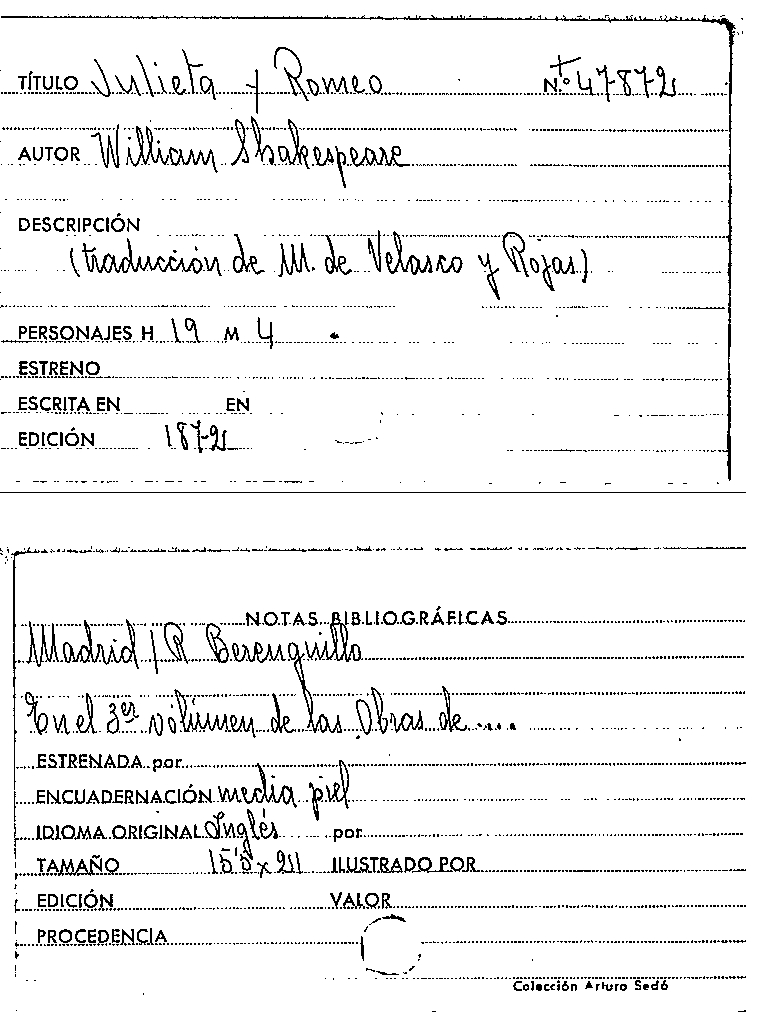 TÍTULO Julieta y Romeo N.º 47872
AUTOR William Shakespeare
DESCRIPCIÓN
(traducción de M. de Velasco y Rojas)
PERSONAJES H 19 M 4
ESTRENO
ESCRITA EN EN
EDICIÓN 1872
NOTAS BIBLIOGRÁFICAS
Madrid / R Berenguillo
En el 3er volúmen de las Obras de ....
ESTRENADA por
ENCUADERNACIÓN media piel
IDIOMA ORIGINAL Inglés por
TAMAÑO 15'5 x 21 ILUSTRADO POR
EDICIÓN VALOR
PROCEDENCIA
Colección Arturo Sedó